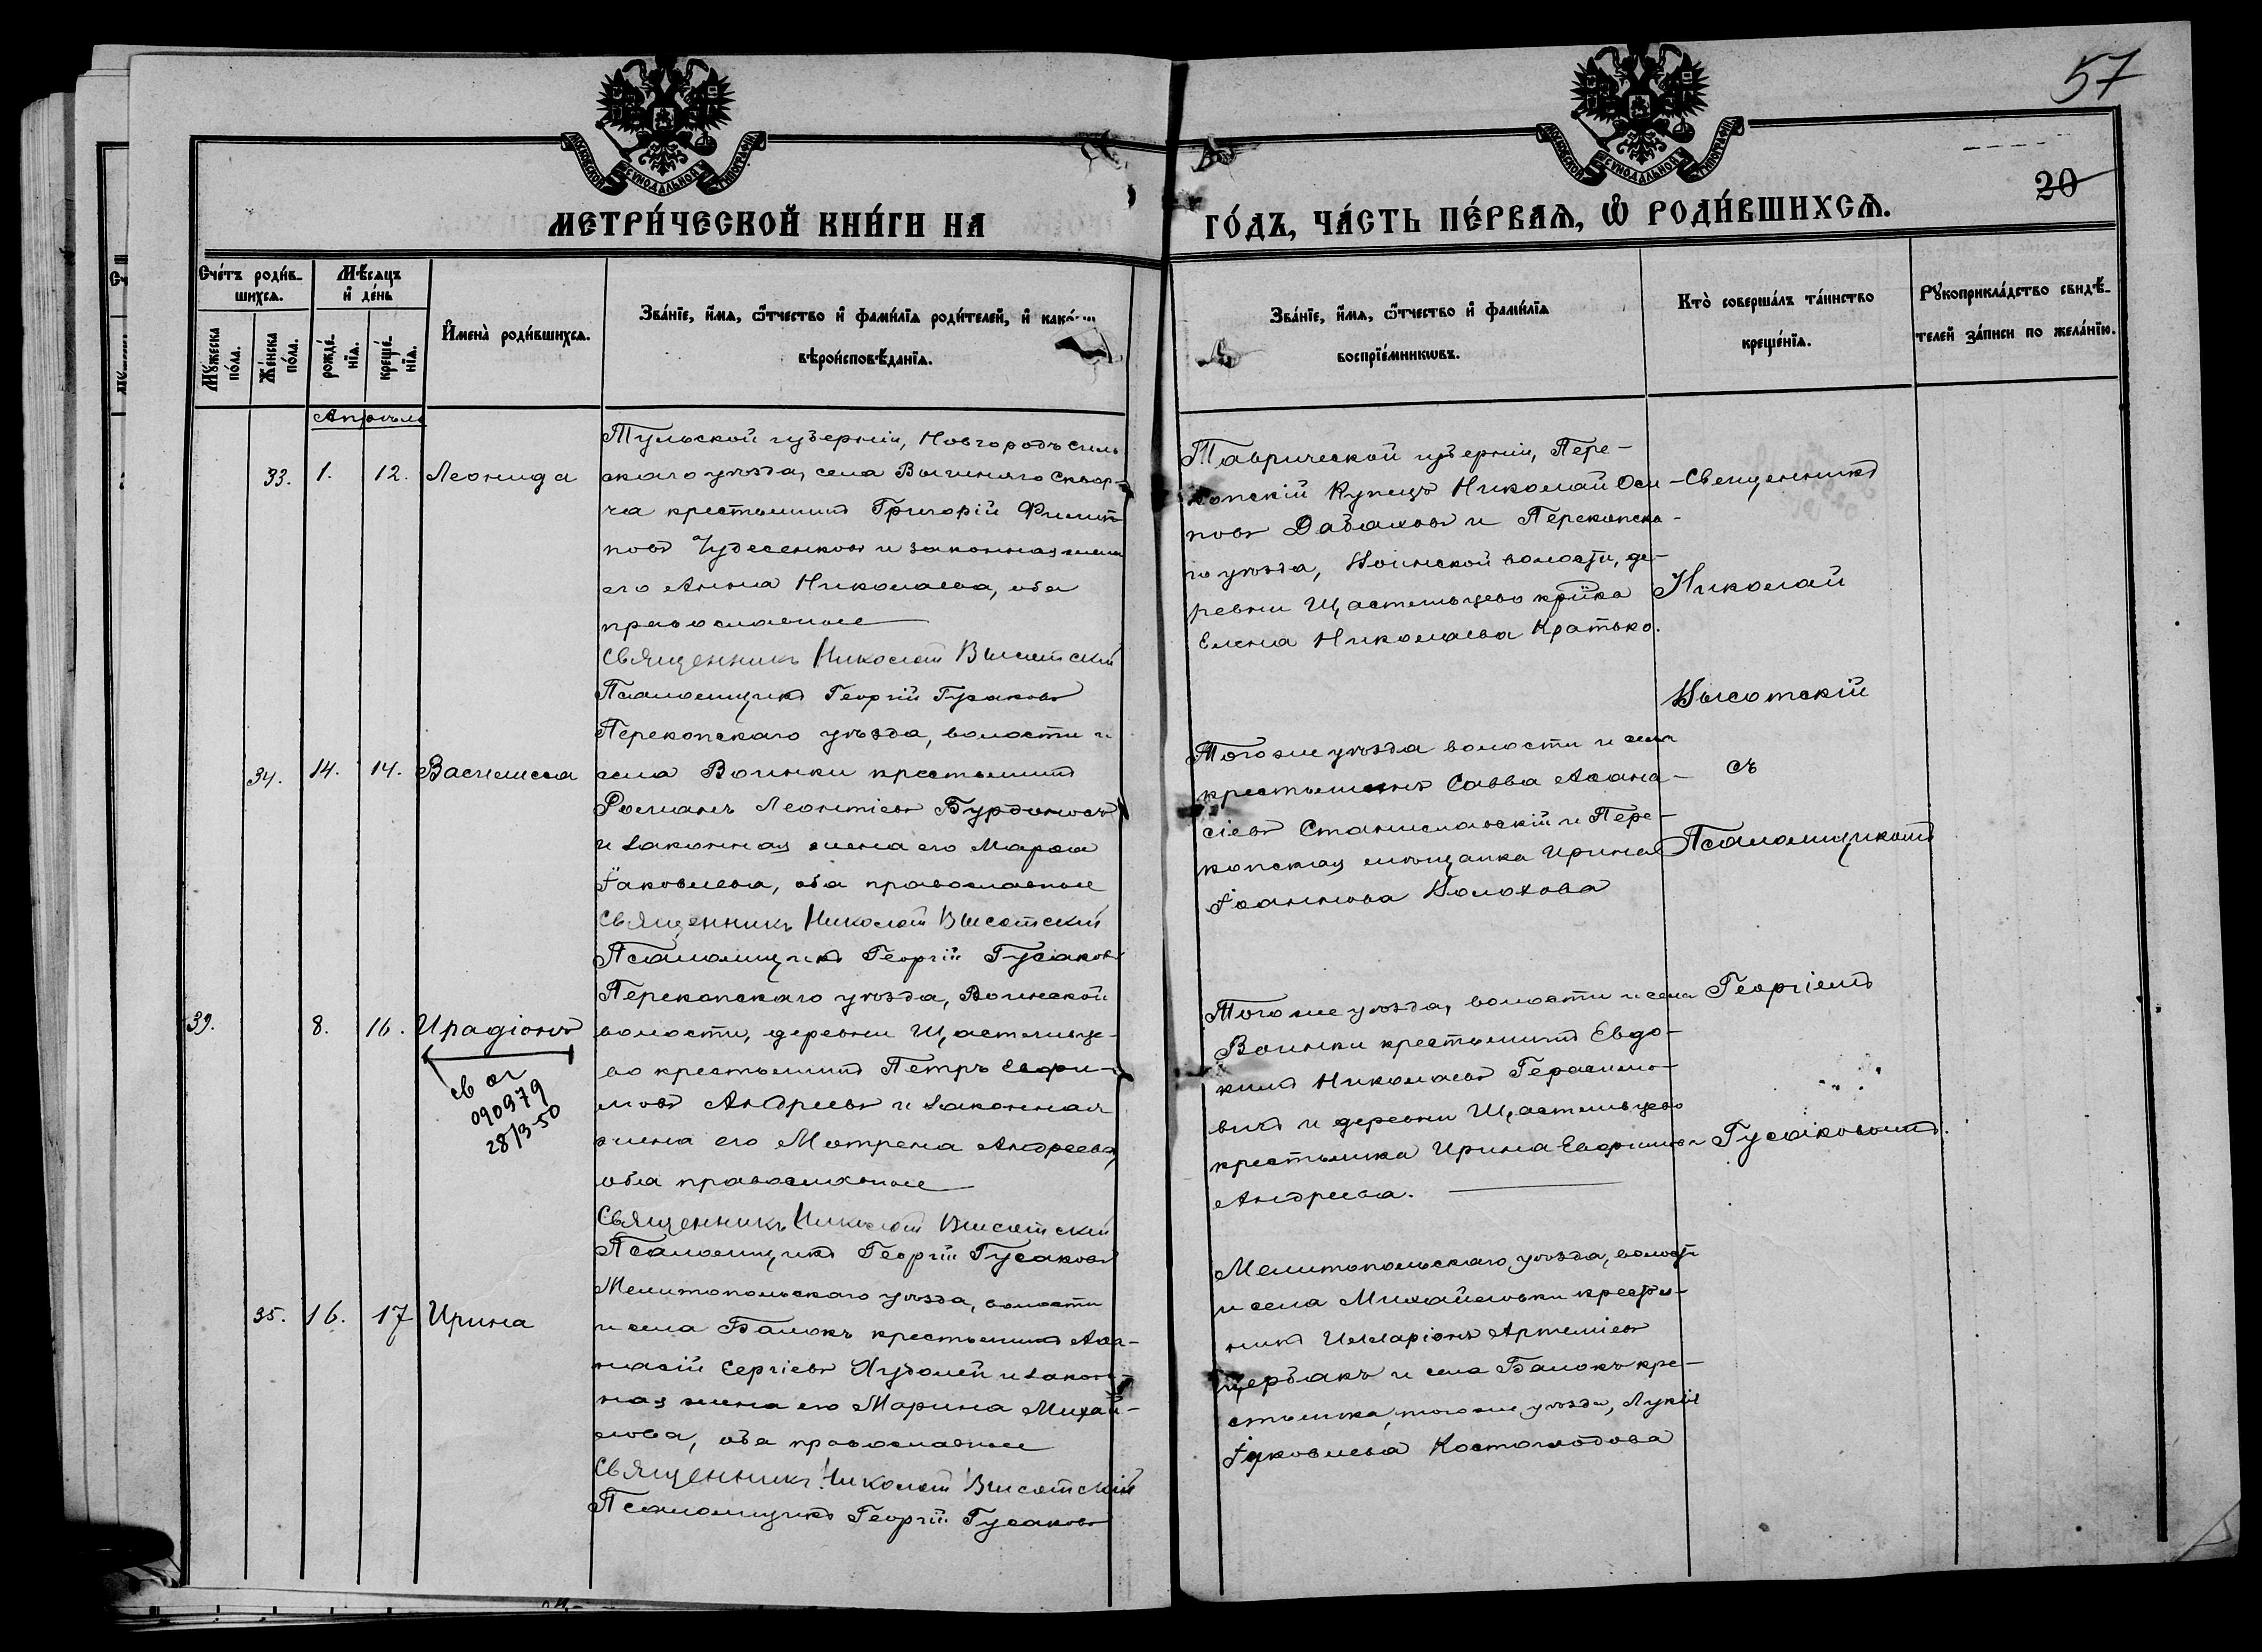 57
20
МОСКОВСКОЙ СѴНОДАЛЬНОЙ ТИПОГРАФІИ
МОСКОВСКОЙ СѴНОДАЛЬНОЙ ТИПОГРАФІИ
МЕТРИ́ЧЕСКОЙ КНИ́ГИ НА
ГО́ДЪ, ЧА́СТЬ ПЕ́РВАѦ, Ѡ҆ РОДИ́ВШИХСѦ.
Сче́тъ роди́в-
шихсѧ.
Мꙋ́жеска
по́ла.
Же́нска
по́ла.
Мѣ́сѧцъ
и҆ де́нь
рожде́-
нїѧ.
креще́-
нїѧ.
И҆мена̀ роди́вшихсѧ.
Зва́нїе, и҆́мѧ, ѻ҆́тчество и҆ фами́лїѧ роди́телей, и҆ како́гѡ
вѣроисповѣ́данїѧ.
Зва́нїе, и҆́мѧ, ѻ҆́тчество и҆ фами́лїѧ
воспрїе́мникѡвъ.
Кто̀ соверша́лъ та́инство
креще́нїѧ.
Рꙋкоприкла́дство свидѣ́-
телей за́писи по жела́нїю.
Апрѣль
33. 1. 12. Леонида
Тульской губерніи, Новгородъ силь
скаго уѣзда, села
ча крестьянинъ Григорій Филип-
повъ Чудесенковъ и законная жена
его Анна Николаева, оба
православные
Священникъ Николай Высотскій
Псаломщикъ Георгій Гусаковъ
Таврической губерніи, Пере-
копскій Купецъ Николай Оси-
повъ Дабаховъ и Перекопска-
го уѣзда, Воинской волости, де-
ревни Щастливцево кр-ка
Елена Николаева Кратько.
34. 14. 14. Василисса
Перекопскаго уѣзда, волости и
села Воинки крестьянинъ
Романъ Леонтіевъ Бурдоносъ
и законная жена его Марѳа
Іаковлева, оба православные
Священникъ Николай Высотскій
Псаломщикъ Георгій Гусаковъ
Того же уѣзда волости и села
крестьянинъ Савва Аѳана-
сіевъ Станиславскій и Пере-
копская мѣщанка Ирина
Іоаннова Волохова
39. 8. 16. Иродіонъ
св ог
090979
28/3-50
Перекопскаго уѣзда, Воинской
волости, деревни Щастливце-
во крестьянинъ Петръ Евфи-
мовъ Андреевъ и законная
жена его Матрена Андреева,
оба православные
Священникъ Николай Высотскій
Псаломщикъ Георгій Гусаковъ
Того же уѣзда, волости и села
Воинки крестьянинъ Евдо-
кимъ Николаевъ Герасимо-
вичъ и деревни Щастливцево
крестьянка Ирина Евфимова
Андреева.
35. 16. 17 Ирина
Мелитопольскаго уѣзда, волости
и села Балокъ крестьянинъ Аѳа-
насій Сергіевъ Худолей и закон-
ная жена его Марина Михай-
лова, оба православные
Священникъ Николай Высотскій
Псаломщикъ Георгій Гусаковъ
Мелитопольскаго уѣзда, волости
и села Михайловки крестья-
нинъ Илларіонъ Артеміевъ
Щербакъ и села Балокъ кре-
стьянка, того же уѣзда, Лукія
Іаковлева Костоглодова
Священникъ
Николай
Высотскій
съ
Псаломщикомъ
Георгіемъ
Гусаковымъ.